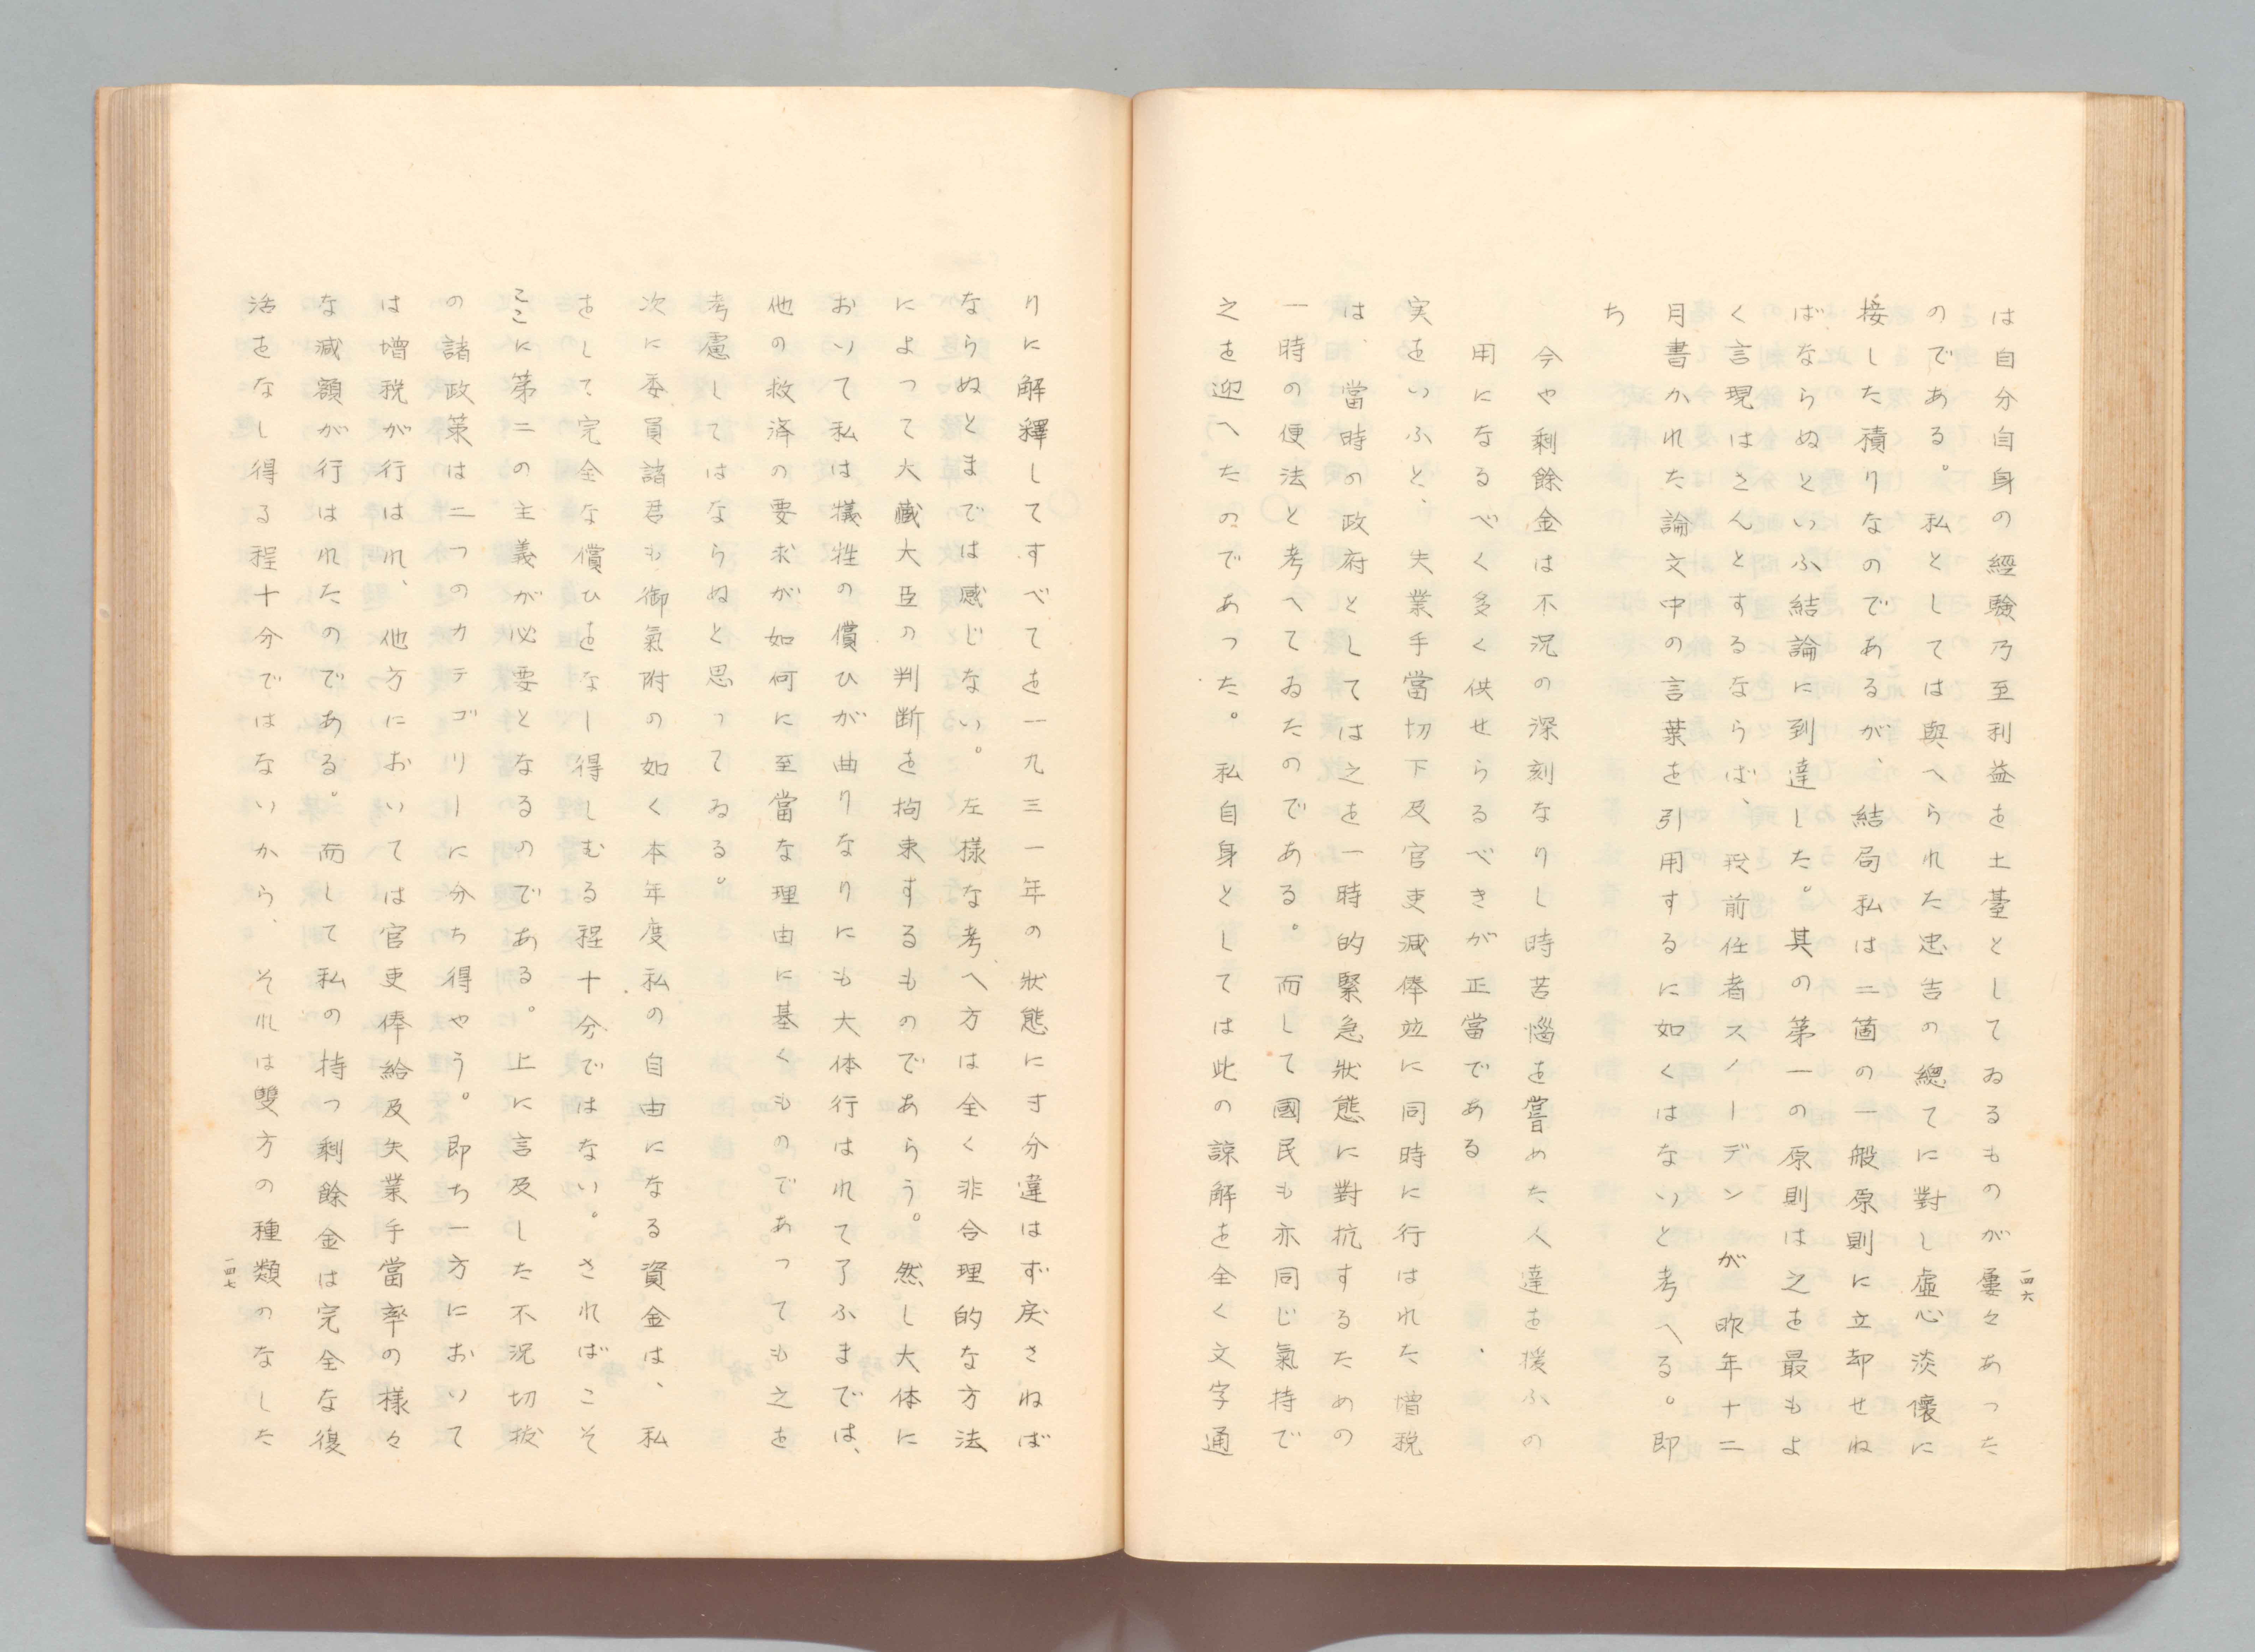 は自分自身の經驗乃至利益を土臺としてゐるものが屢々あった
のである。私としては與へられた忠告の總てに對し虛心淡懷に
接した積りなのであるが、結局私は二箇の一般原則に立却せね
ばならぬといふ結論に到達した。其の第一の原則は之を最もよ
く言現はさんとするならば、我前任者スノーデンが昨年十二
月書かれた論文中の言葉を引用するに如くはないと考へる。即
ち
今や剰餘金は不況の深刻なりし時苦惱を嘗めた人達を援ふの
用になるべく多く供せらるべきが正當である、
実をいふと、失業手當切下及官吏減俸竝に同時に行はれた増税
は、當時の政府としては之を一時的緊急狀態に對抗するための
一時の便法と考へてゐたのである。而して國民も亦同じ氣持で
之を迎へたのであった。私自身としては此の諒解を全く文字通
一四六
りに解釋してすべてを一九三一年の狀態に寸分違はず戻さねば
ならぬとまでは感じない。左樣な考へ方は全く非合理的な方法
によって大藏大臣の判断を拘束するものであらう。然し大体に
おいて私は犠牲の償ひが曲りなりにも大体行はれて了ふまでは、
他の救済の要求が如何に至當な理由に基くものであっても之を
考慮してはならぬと思ってゐる。
次に委員諸君も御氣附の如く本年度私の自由になる資金は、私
をして完全な償ひをなし得しむる程十分ではない。さればこそ
ここに第二の主義が必要となるのである。上に言及した不況切抜
の諸政策は二つのカテゴリーに分ち得やう。即ち一方において
は増税が行はれ、他方においては官吏俸給及失業手當率の様々
な減額が行はれたのである。而して私の持つ剰餘金は完全な復
活をなし得る程十分ではないから、それは雙方の種類のなした
一四七